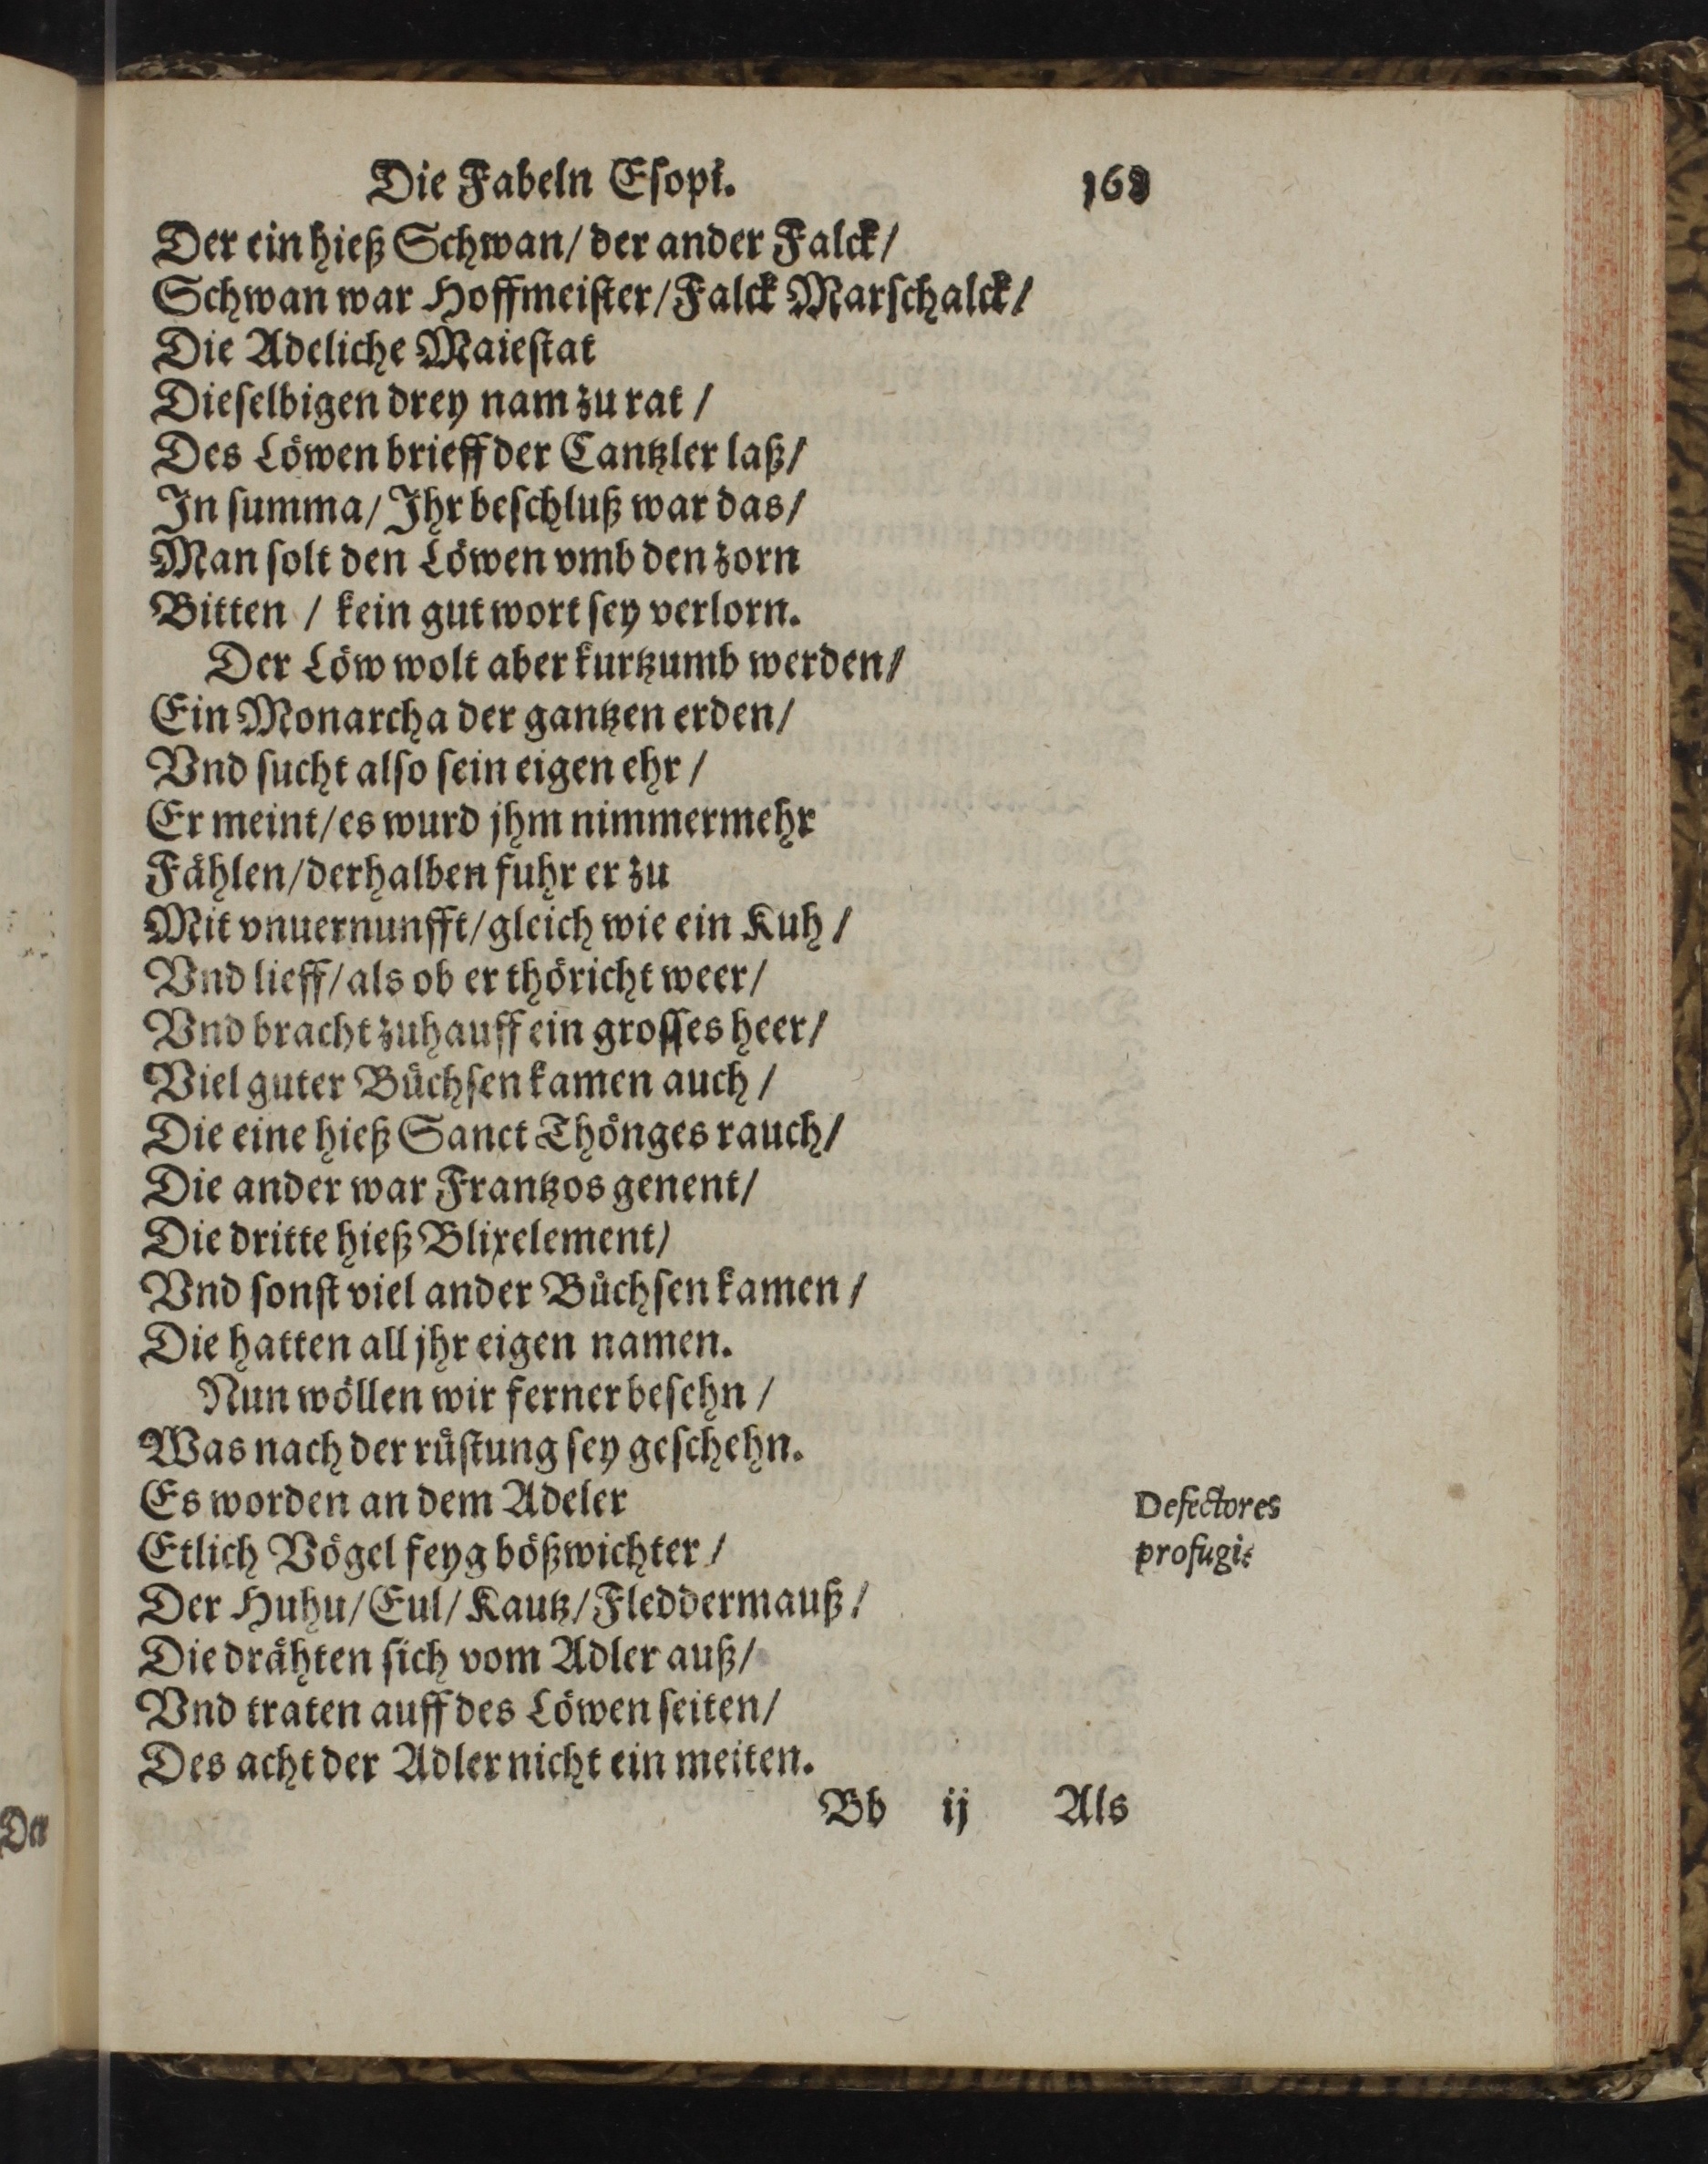 Die Fabeln Esopi. 168
Der ein hieß Schwan/ der ander Falck/
Schwan war Hoffmeister/ Falck Marschalck/
Die Adeliche Maiestat
Dieselbigen drey nam zu rat /
Des Löwen brieff der Cantzler laß/
In summa/ Ihr beschluß war das/
Man solt den Löwen vmb den zorn
Bitten / kein gut wort sey verlorn.
Der Löw wolt aber kurtzumb werden/
Ein Monarcha der gantzen erden/
Vnd sucht also sein eigen ehr /
Er meint/ es wurd jhm nimmermehr
Fählen/ derhalben fuhr er zu
Mit vnuernunfft/ gleich wie ein Kuh /
Vnd lieff/ als ob er thöricht weer/
Vnd bracht zuhauff ein grosses heer/
Viel guter Büchsen kamen auch /
Die eine hieß Sanct Thönges rauch/
Die ander war Frantzos genent/
Die dritte hieß Blixelement/
Vnd sonst viel ander Büchsen kamen /
Die hatten all jhr eigen namen.
Nun wöllen wir ferner besehn /
Was nach der rüstung sey geschehn.
Es worden an dem Adeler
Etlich Vögel feyg bößwichter /
Der Huhu/ Eul/ Kautz/ Fleddermauß /
Die drähten sich vom Adler auß/
Vnd traten auff des Löwen seiten/
Des acht der Adler nicht ein meiten.
Defectores
profugi:
Bb ij Als
Der